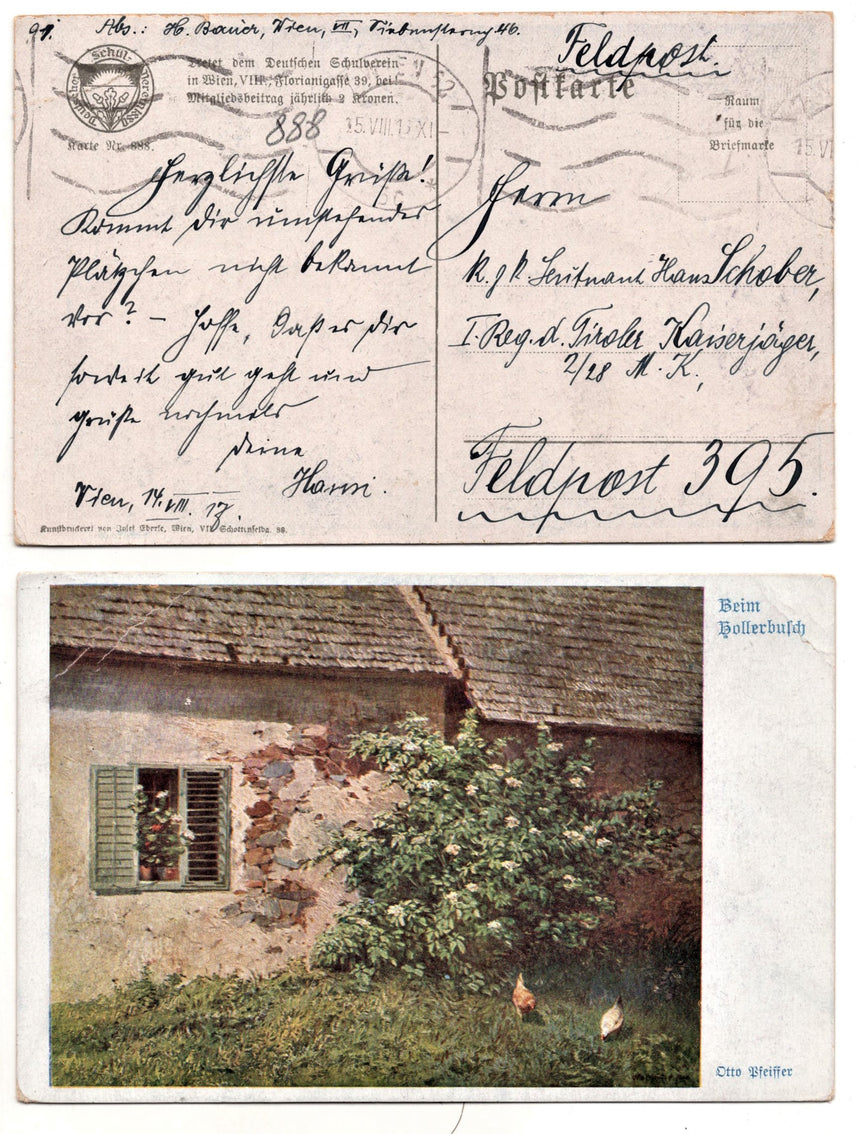 Abs.: H. Bauer, Wien, VII, Siebensterng. 46.
Schul-
verein
Tretet dem Deutschen Schulverein
in Wien, VIII., Florianigasse 39, bei
Mitgliedsbeitrag jährlich 2 Kronen.
Karte Nr. 888.
888
15.VIII.17 XI
Feldpost.
Postkarte
Raum
für die
Briefmarke
Herzlichste Grüße!
Kommt Dir umstehendes
Plätzchen nicht bekannt
vor? – Hoffe, daß es Dir
soweit gut geht und
grüße nochmals
Deine
Hansi.
Wien, 14. VIII. 17.
Kunstdruckerei von Josef Eberle, Wien, VII. Schottenfeldg. 38.
Herrn
k. u. k. Leutnant Hans Schober,
I. Reg. d. Tiroler Kaiserjäger,
2/28 M. K.,
Feldpost 395.
Beim
Hollerbusch
Otto Pfeiffer